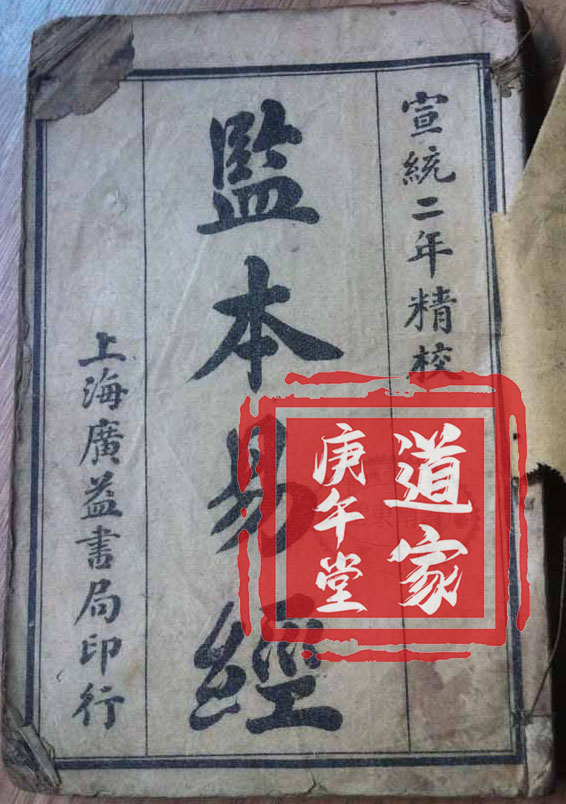 宣統二年精校
監本易經
上海廣益書局印行
道家
庚午堂